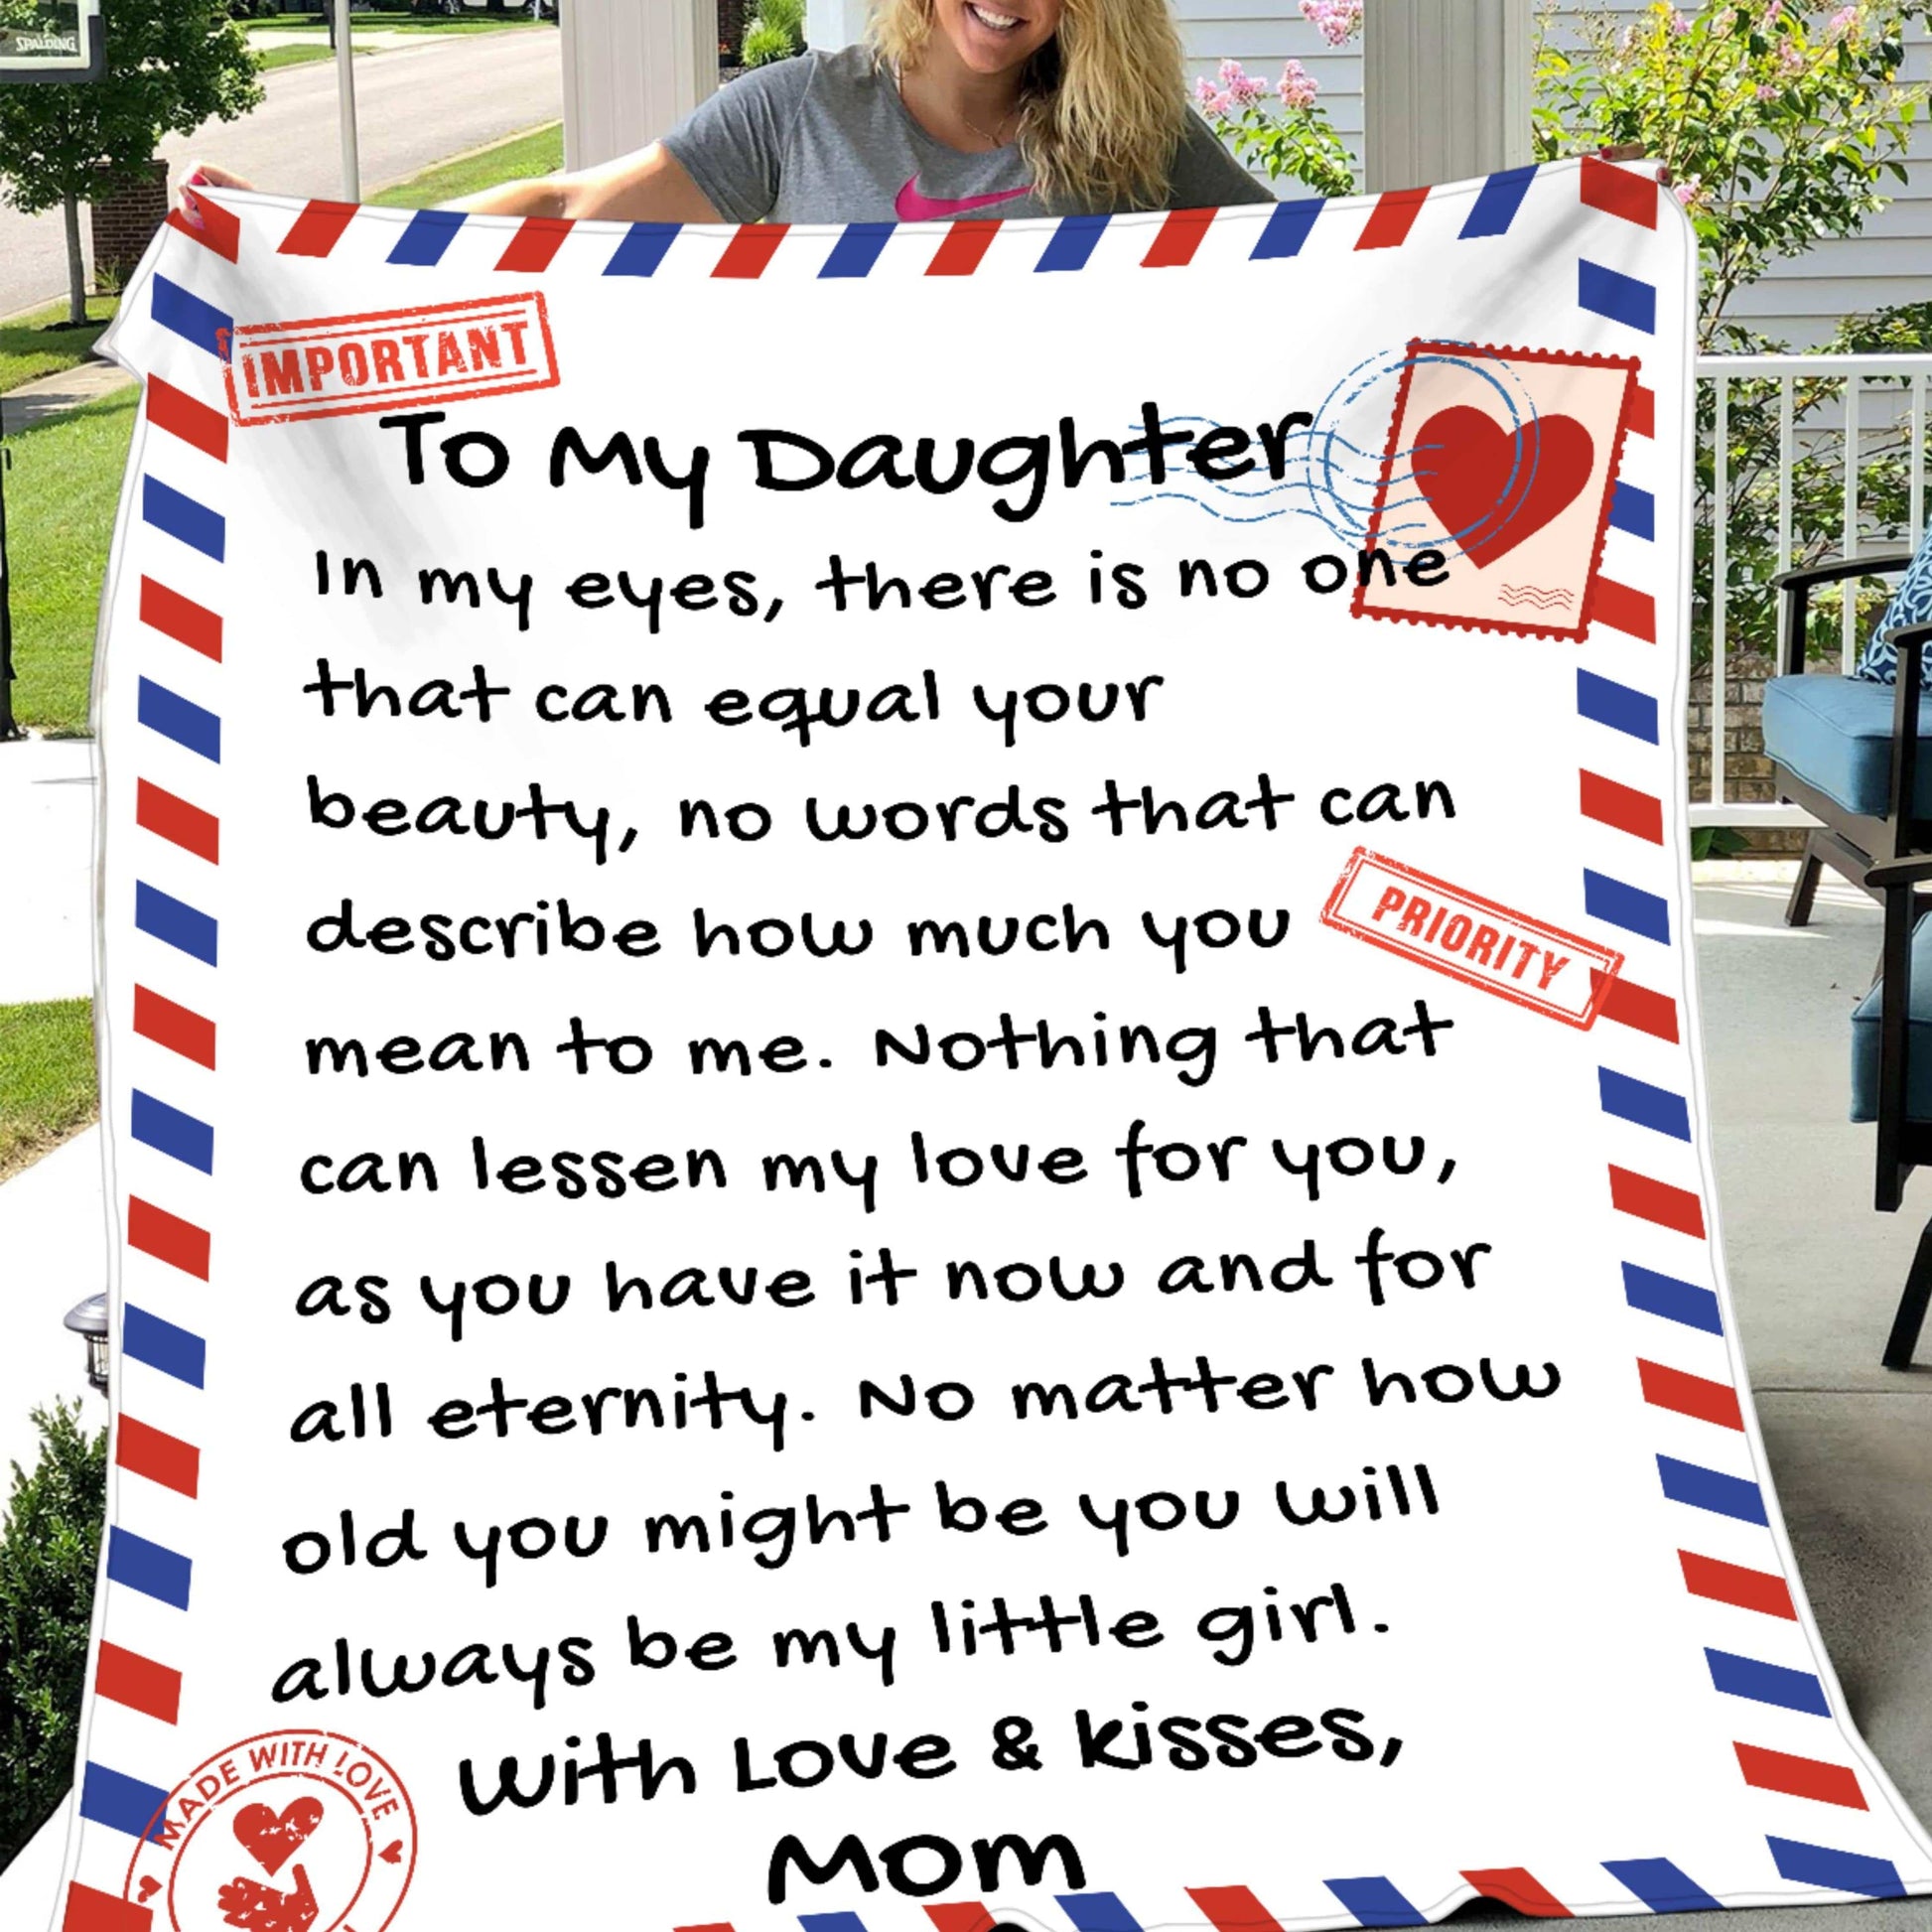 SPALDING
IMPORTANT
To My Daughter
In my eyes, there is no one
that can equal your
beauty, no words that can
describe how much you
PRIORITY
mean to me. Nothing that
can lessen my love for you,
as you have it now and for
all eternity. No matter how
old you might be you will
always be my little girl.
With Love & kisses,
Mom
MADE WITH LOVE